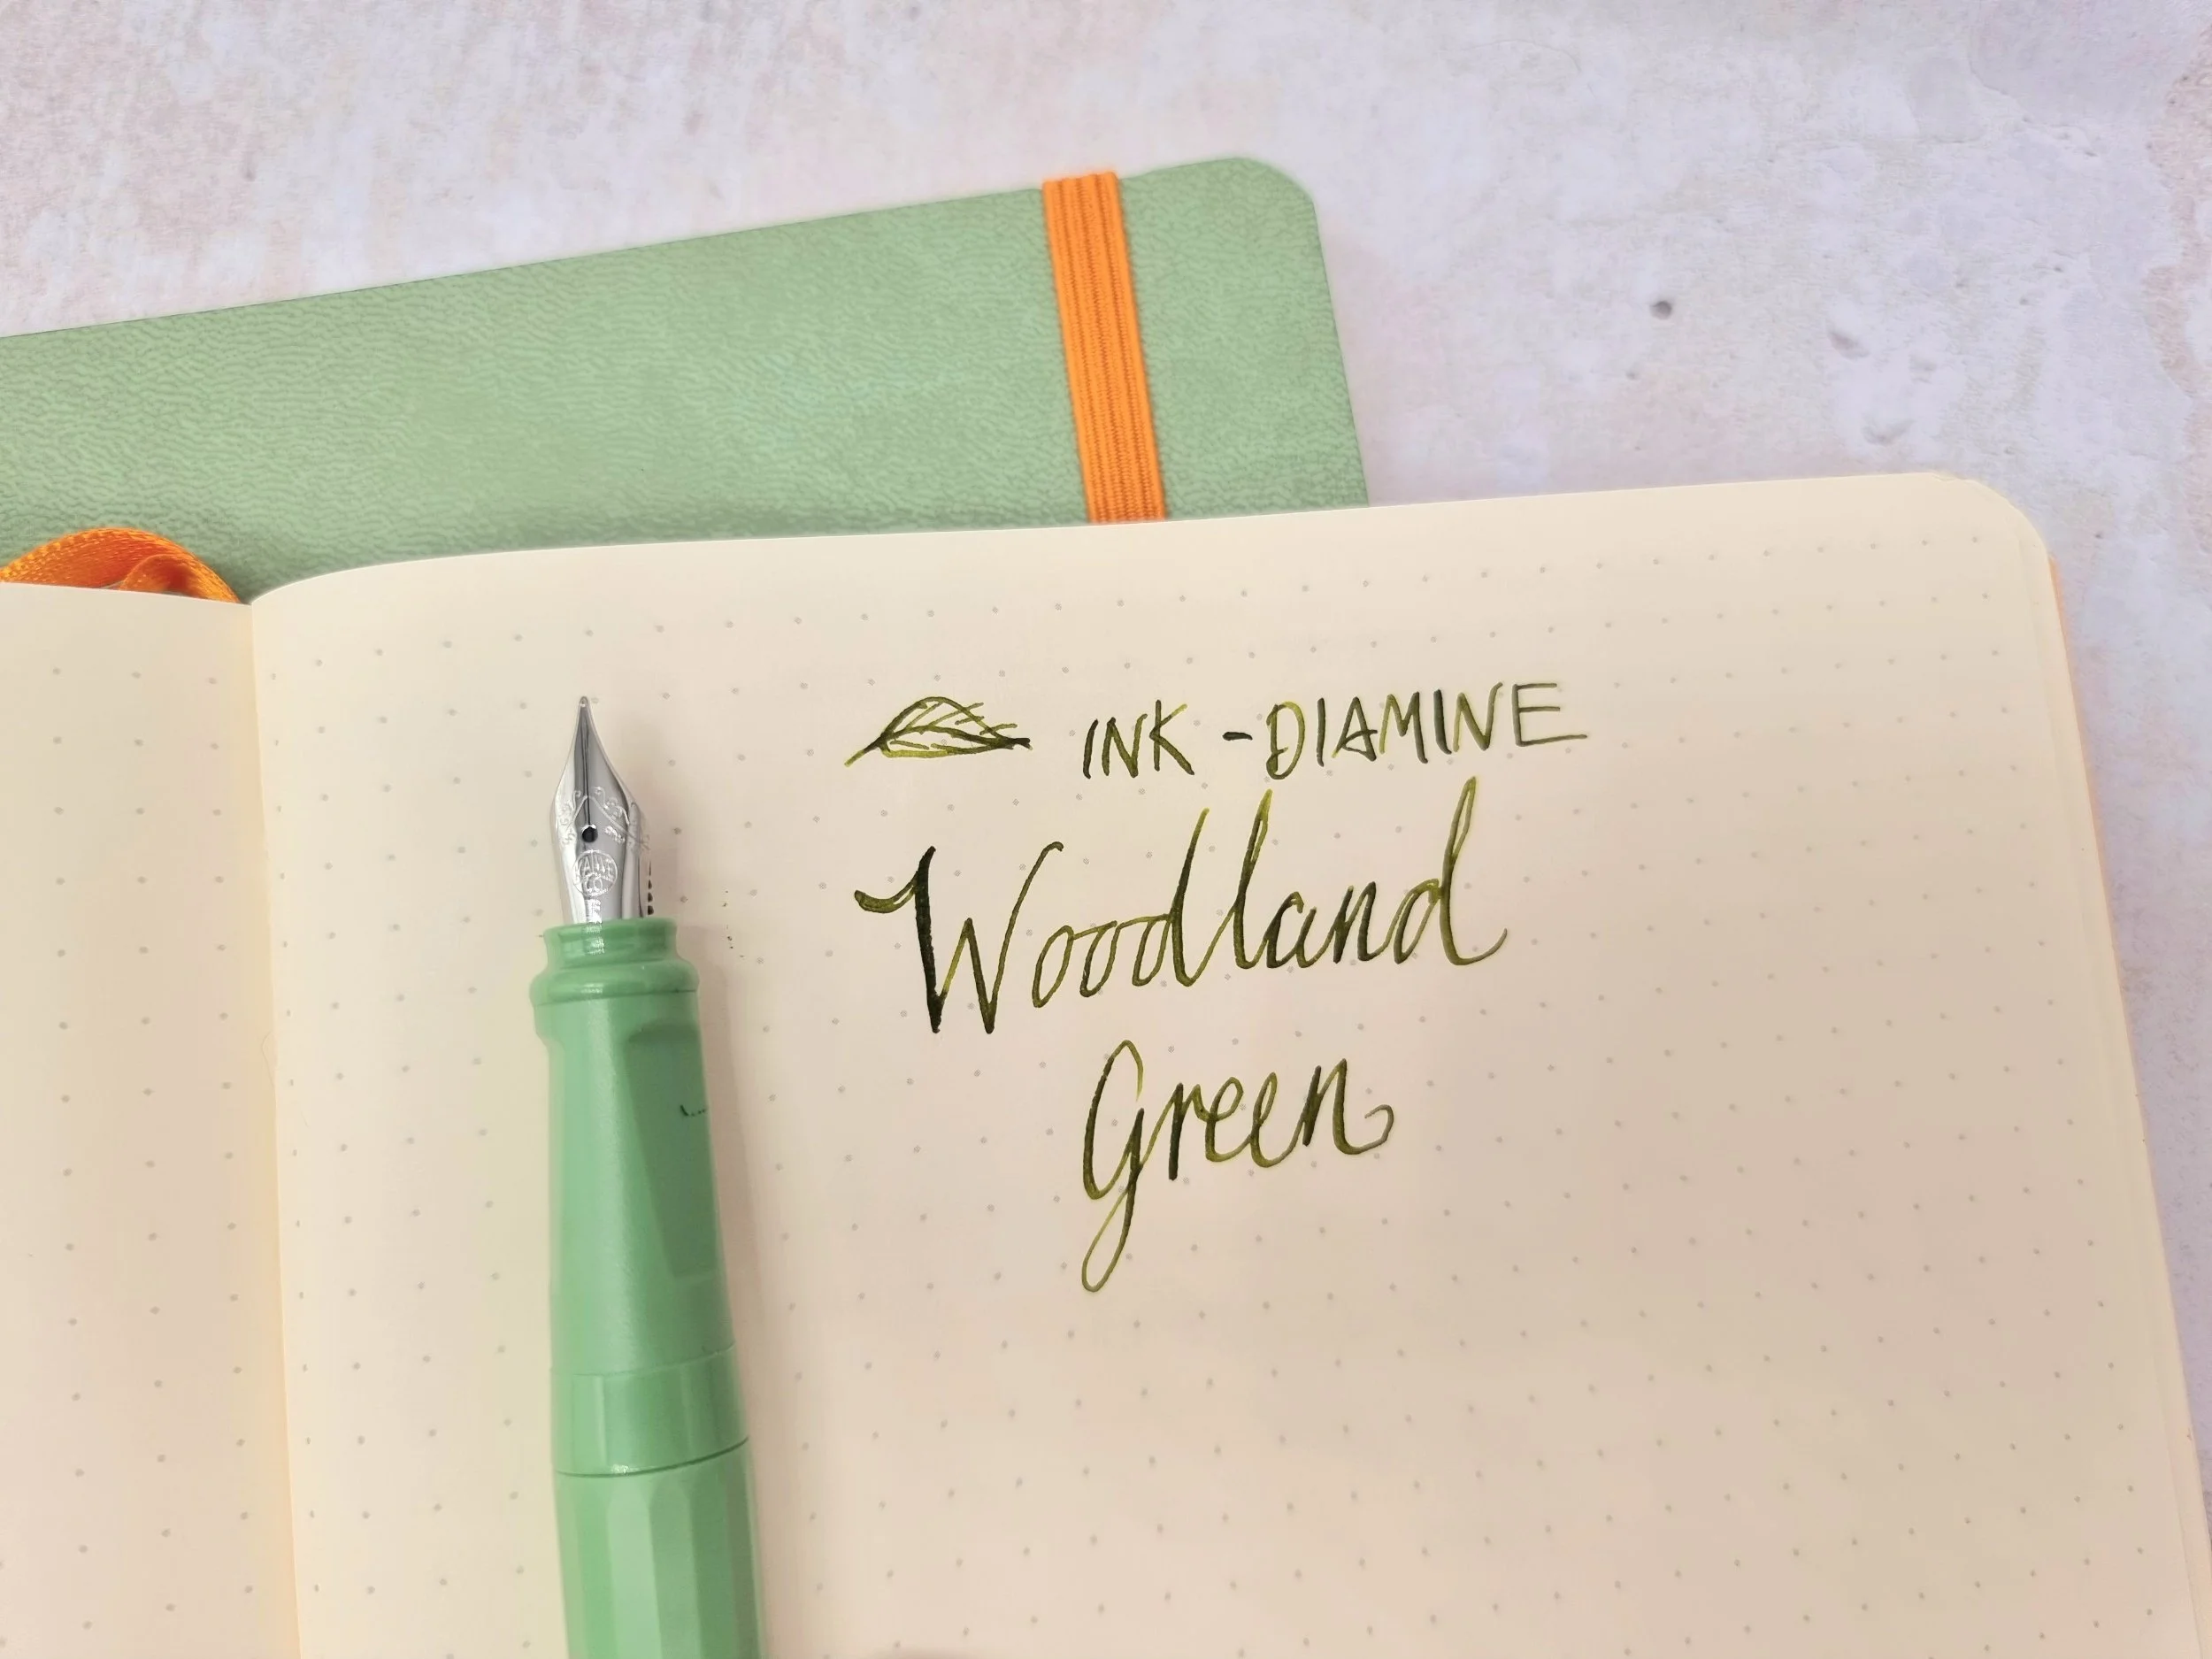 INK - DIAMINE
Woodland
Green